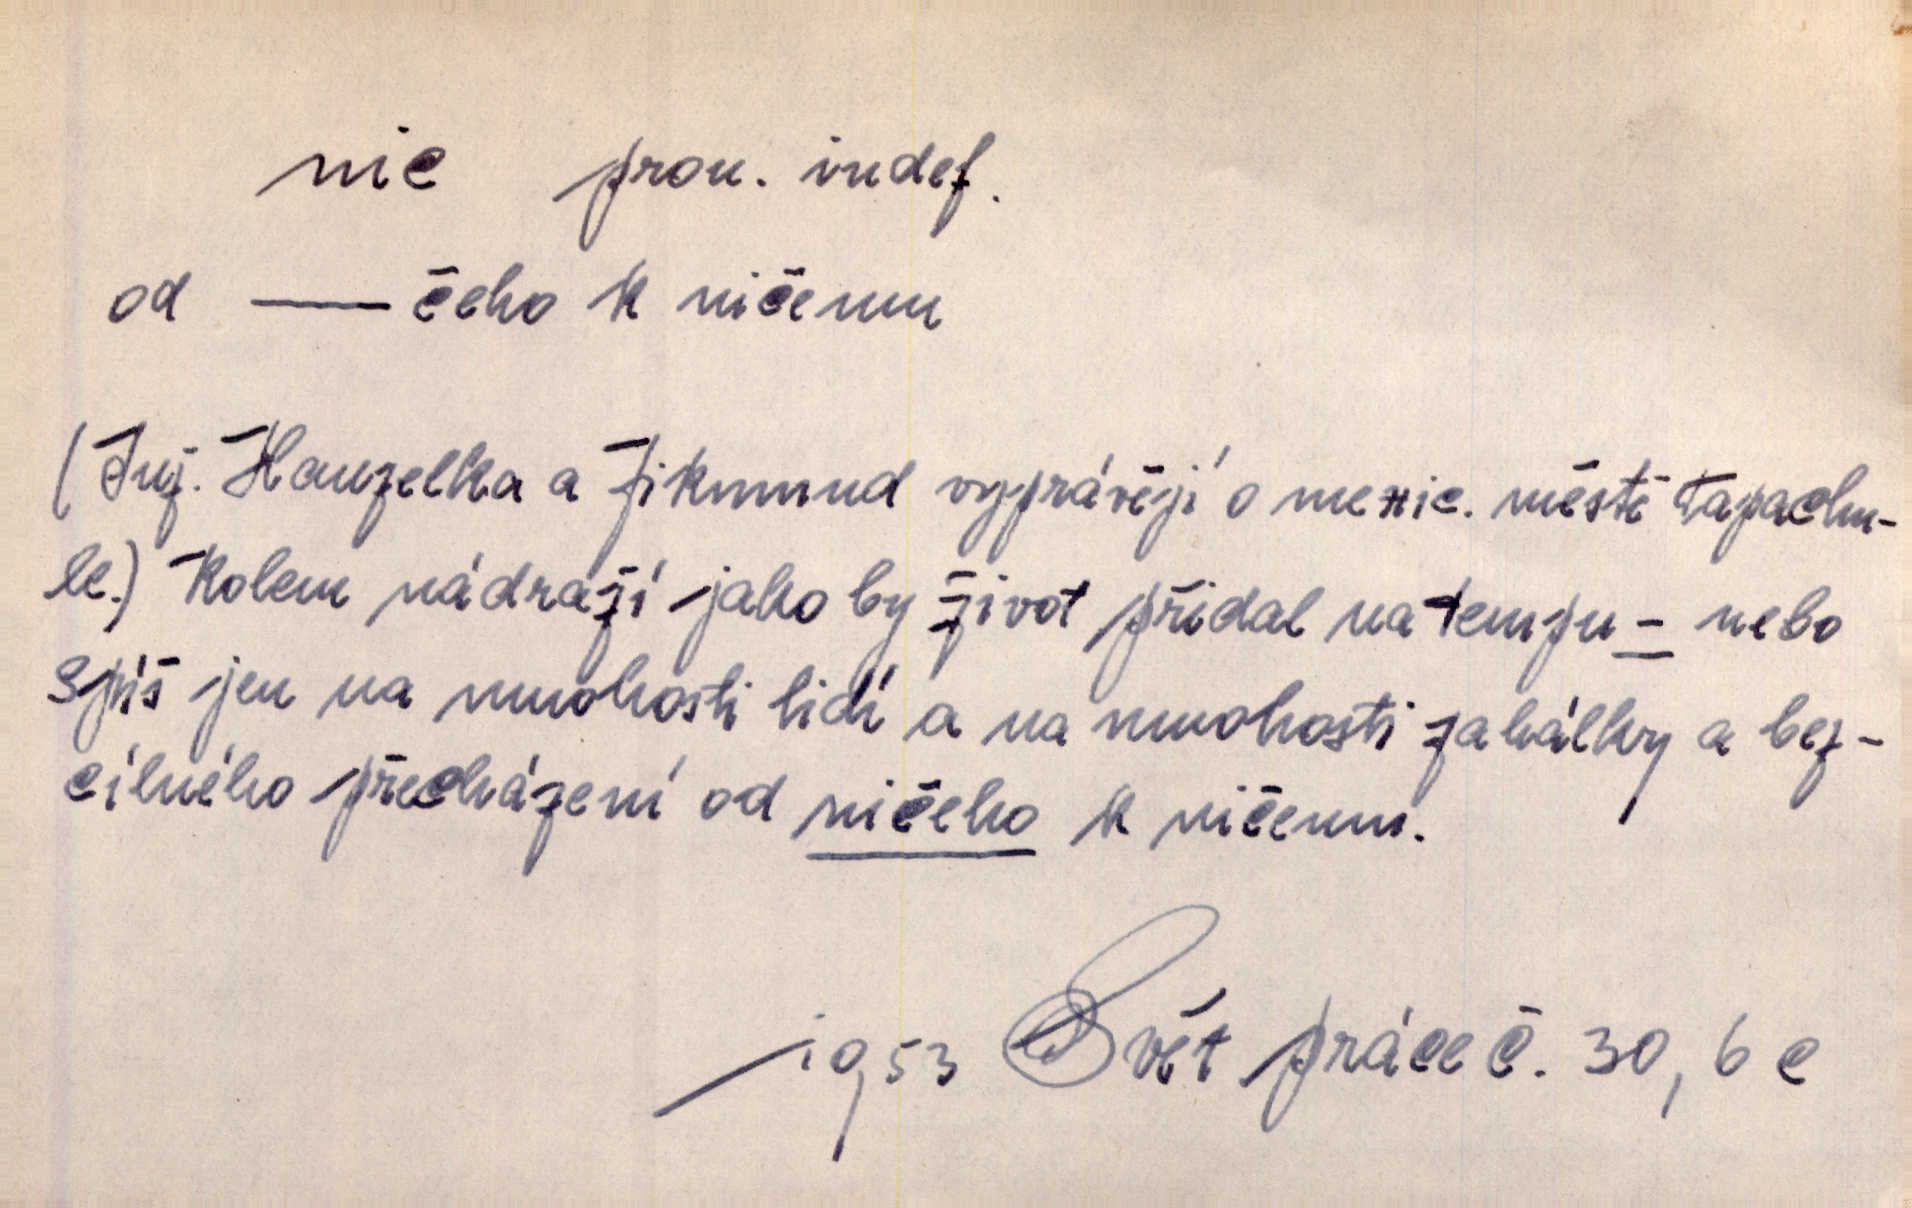 nic pron. indef.
od —— čeho k ničemu
(Inž. Hanzelka a Zikmund vyprávějí o mexic. městě Tapachu-
le.) Kolem nádraží jako by život přidal na tempu – nebo
spíš jen na mnohosti lidí a na mnohosti zahálky a bez-
cílného přecházení od ničeho k ničemu.
1953 Svět práce č. 30, 6 c